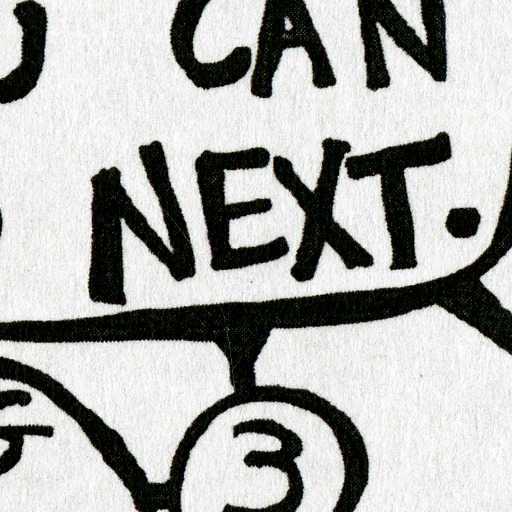 CAN
NEXT.
3